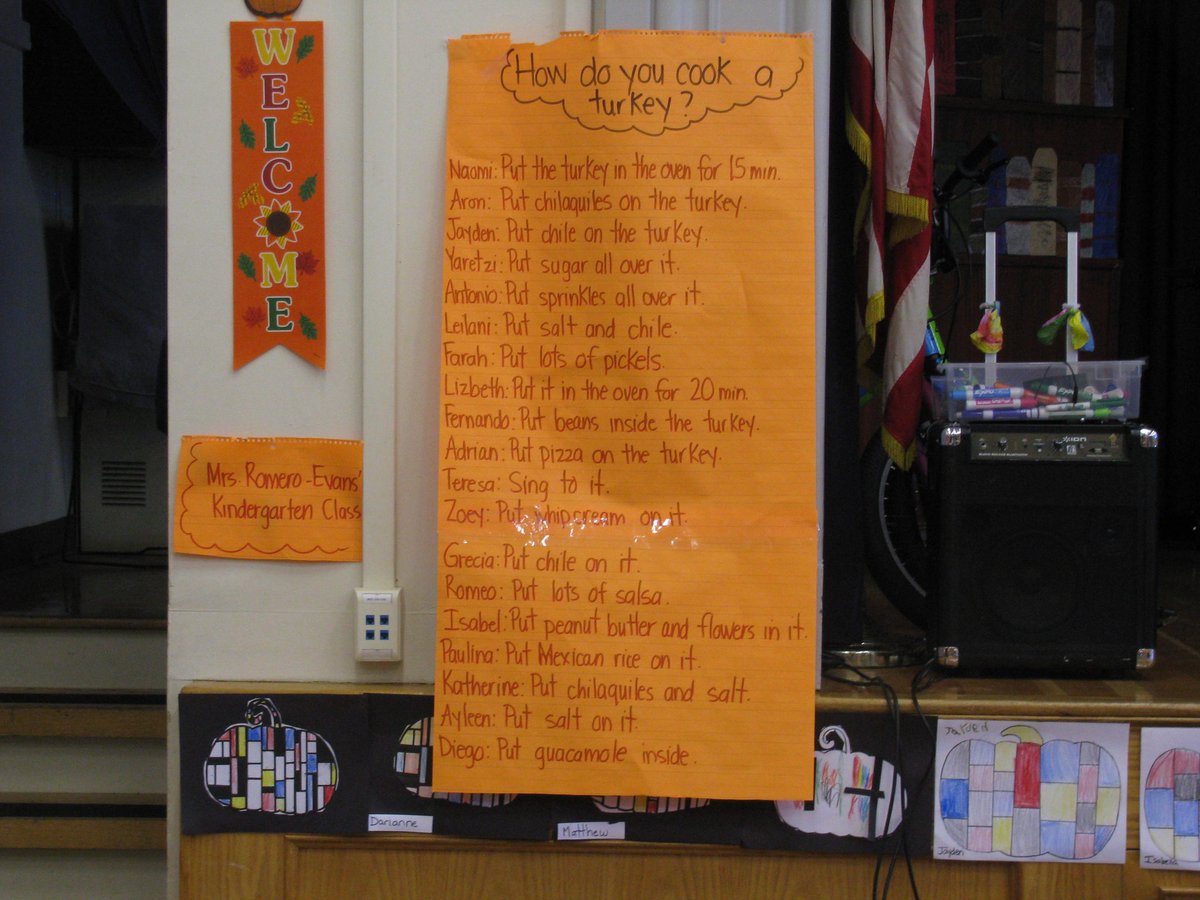 WELCOME
How do you cook a
turkey?
Naomi: Put the turkey in the oven for 15 min.
Aron: Put chilaquiles on the turkey.
Jayden: Put chile on the turkey.
Yaretzi: Put sugar all over it.
Antonio: Put sprinkles all over it.
Leilani: Put salt and chile.
Farah: Put lots of pickels.
Lizbeth: Put it in the oven for 20 min.
Fernando: Put beans inside the turkey.
Adrian: Put pizza on the turkey.
Teresa: Sing to it.
Zoey: Put whip cream on it.
Grecia: Put chile on it.
Romeo: Put lots of salsa.
Isabel: Put peanut butter and flowers in it.
Paulina: Put Mexican rice on it.
Katherine: Put chilaquiles and salt.
Ayleen: Put salt on it.
Diego: Put guacamole inside.
Mrs. Romero-Evans'
Kindergarten Class
EXPO
ION
Darianne
Matthew
Jayden
Isabela